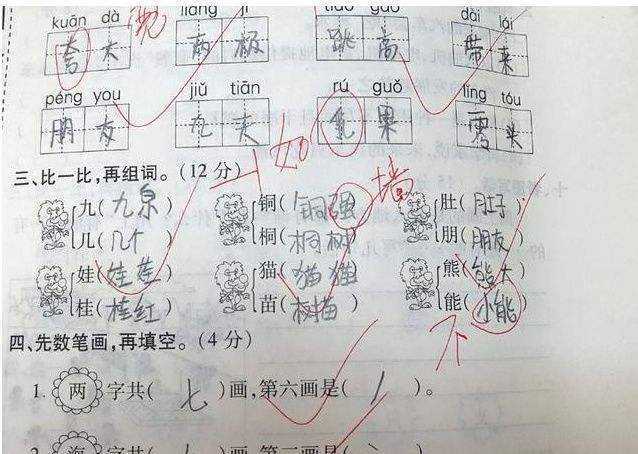 kuān dà liǎng jí tiào gāo dài lái
夸大 两极 跳高 带来
宽
péng you jiǔ tiān rú guǒ líng tóu
朋友 九天 果 零头
如
三、比一比,再组词。(12分)
九(九泉) 铜(铜强) 肚(肚子)
墙
儿(几个) 桐(桐树) 朋(朋友)
娃(娃娃) 猫(猫猫) 熊(熊大)
桂(桂红) 苗(树苗) 能(小能)
不
四、先数笔画,再填空。(4分)
1. 两 字共(七)画,第六画是(丿)。
2. 海 字共( )画,第二画是( )